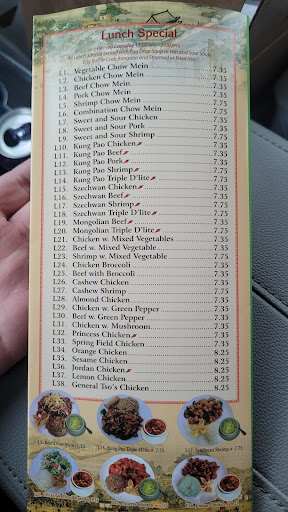 Lunch Special
L1. Vegetable Chow Mein 7.35
L2. Chicken Chow Mein 7.35
L3. Beef Chow Mein 7.35
L4. Pork Chow Mein 7.35
L5. Shrimp Chow Mein 7.35
L6. Combination Chow Mein 7.35
L7. Sweet and Sour Chicken 7.35
L8. Sweet and Sour Pork 7.35
L9. Sweet and Sour Shrimp 7.35
L10. Kung Pao Chicken 7.35
L11. Kung Pao Beef 7.35
L12. Kung Pao Pork 7.35
L13. Kung Pao Shrimp 7.35
L14. Kung Pao Triple D'lite 7.35
L15. Szechwan Chicken 7.35
L16. Szechwan Beef 7.35
L17. Szechwan Shrimp 7.35
L18. Szechwan Triple D'lite 7.35
L19. Mongolian Beef 7.35
L20. Mongolian Triple D'lite 7.35
L21. Chicken w. Mixed Vegetables 7.35
L22. Beef w. Mixed Vegetable 7.35
L23. Shrimp w. Mixed Vegetable 7.35
L24. Chicken Broccoli 7.35
L25. Beef with Broccoli 7.35
L26. Cashew Chicken 7.35
L27. Cashew Shrimp 7.35
L28. Almond Chicken 7.35
L29. Chicken w. Green Pepper 7.35
L30. Beef w. Green Pepper 7.35
L31. Chicken w. Mushroom 7.35
L32. Princess Chicken 7.35
L33. Spring Field Chicken 7.35
L34. Orange Chicken 8.25
L35. Sesame Chicken 8.25
L36. Jordan Chicken 8.25
L37. Lemon Chicken 8.25
L38. General Tso's Chicken 8.25
L3. Beef Chow Mein 7.35
L14. Kung Pao Triple D'lite 7.35
L17. Szechwan Shrimp 7.35